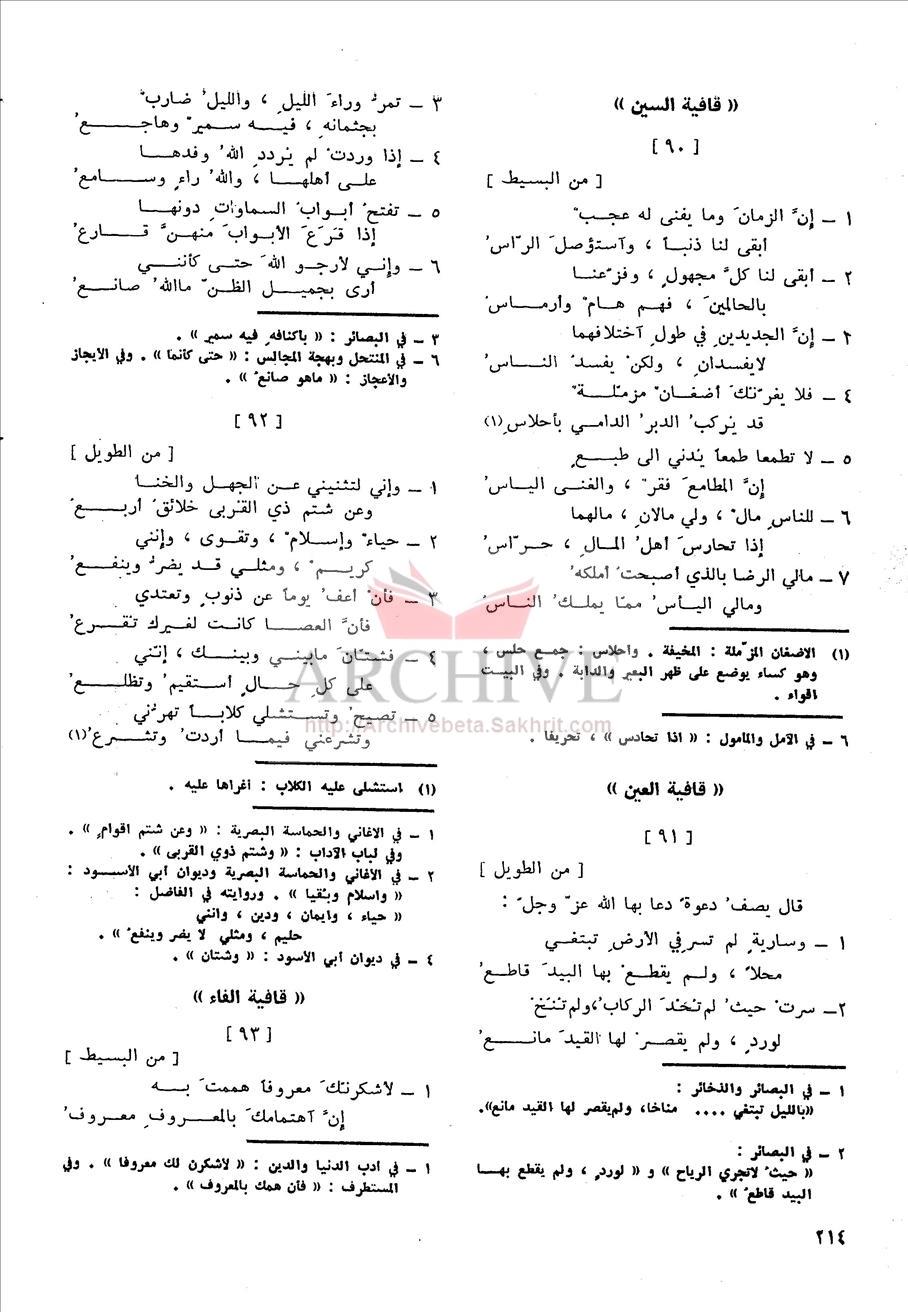 « قافية السين »
[ ٩٠ ]
[ من البسيط ]
١ ــ إنَّ الزمانَ وما يفنى له عجبٌ
أبقى لنا ذنباً ، وآستؤصل الرّاسُ
٢ ــ أبقى لنا كلَّ مجهولٍ ، وفزّعنا
بالحالمينَ ، فهم هامٌ وأرماسُ
٣ ــ إنَّ الجديدينِ في طولِ آختلافهما
لايفسدانِ ، ولكنْ يفسدُ الناسُ
٤ ــ فلا يغرّنكَ أضغانٌ مزمّلةٌ
قد يُركبُ الدبرُ الدامي بأحلاسِ (١)
٥ ــ لا تطمعا طمعاً يُدني الى طبعٍ
إنَّ المطامعَ فقرٌ ، والغنى الياسُ
٦ ــ للناسِ مالٌ ، ولي مالان ، مالهما
إذا تحارسَ أهلُ المالِ ، حرّاسُ
٧ ــ مالي الرضا بالذي أصبحتُ أملكهُ
ومالي اليأسُ ممّا يملكُ الناسُ
(١) الاضغان المزّملة : المخيفة . واحلاس : جمع حلس ،
وهو كساء يوضع على ظهر البعير والدابة . وفي البيت
اقواء .
٦ ــ في الآمل والمامول : « اذا تحادس » ، تحريفا .
« قافية العين »
[ ٩١ ]
[ من الطويل ]
قال يصفُ دعوةً دعا بها الله عزّ وجلّ :
١ ــ وساريةٍ لم تسرِفي الأرضِ تبتغي
محلاً ، ولم يقطعْ بها البيدَ قاطعُ
٢ــ سرتْ حيثُ لم تَخْدَ الركابُ،ولم تُنَخْ
لوردٍ ، ولم يقصرْ لها القيدَ مانعُ
١ ــ في البصائر والذخائر :
«بالليل تبتغي .... مناخا، ولم يقصر لها القيد مانع».
٢ ــ في البصائر :
« حيثُ لاتجري الرياح » و « لوردٍ ، ولم يقطع بها
البيد قاطعُ » .
٣ ــ تمرُّ وراءَ الليلِ ، والليلُ ضاربٌ
بجثمانهِ ، فيه سميرٌ وهاجعُ
٤ ــ إذا وردتْ لم يَرددِ اللهُ وفدها
على أهلها ، واللهُ راءٍ وسامعُ
٥ ــ تفتحُ أبوابُ السماواتِ دونها
إذا قَرَعَ الأبوابَ منهنَّ قارعُ
٦ ــ وإني لأرجو اللهَ حتى كأنني
أرى بجميلِ الظنّ ماالله صانعُ
٣ ــ في البصائر : « باكنافهِ فيه سمير » .
٦ ــ في المنتحل وبهجة المجالس : « حتى كانما » . وفي الايجاز
والأعجاز : « ماهو صانعُ » .
[ ٩٢ ]
[ من الطويل ]
١ ــ وإني لتثنيني عن الجهلِ والخنا
وعن شتم ذي القربى خلائقُ أربعُ
٢ ــ حياءٌ وإسلامٌ ، وتقوى ، وإنني
كريمٌ ، ومثلي قد يضرُّ وينفعُ
٣ ــ فأنْ أعفُ يوماً عن ذنوبٍ وتعتدي
فأنَّ العصا كانت لغيرك تقرعُ
٤ ــ فشتّانَ مابيني وبينك ، إنّني
على كلِ حالٍ أستقيمُ وتظلعُ
٥ ــ تصيحُ وتستشلي كلاباً تهرّني
وتشرعني فيما أردتُ وتشرعُ (١)
(١) استشلى عليه الكلاب : أغراها عليه .
١ ــ في الاغاني والحماسة البصرية : « وعن شتم اقوامٍ » .
وفي لباب الآداب : « وشتم ذوي القربى » .
٢ ــ في الأغاني والحماسة البصرية وديوان أبي الأسود :
« واسلام وبُقيا » . وروايته في الفاضل :
« حياء ، وايمان ، ودين ، وانني
حليم ، ومثلي لا يضر وينفعُ » .
٤ ــ في ديوان أبي الأسود : « وشتان » .
« قافية الفاء »
[ ٩٣ ]
[ من البسيط ]
١ ــ لأشكرنّكَ معروفاً هممتَ به
إنَّ آهتمامكَ بالمعروفِ معروفُ
١ ــ في أدب الدنيا والدين : « لأشكرن لك معروفا » . وفي
المستطرف : « فأن همك بالمعروف » .
٢١٤
ARCHIVE
http://Archivebeta.Sakhrit.com